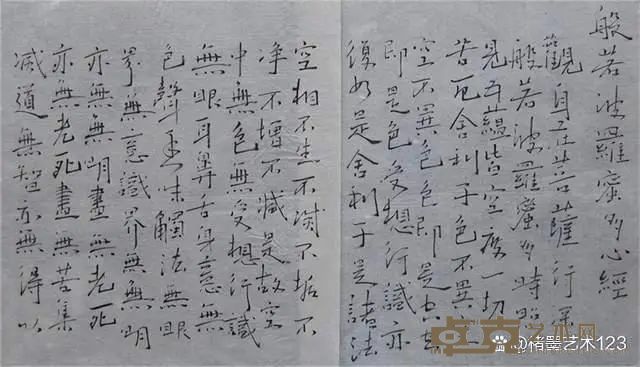 般若波羅蜜多心經
觀自在菩薩行深
般若波羅蜜多時照
見五蘊皆空度一切
苦厄舍利子色不異空
空不異色色即是空空
即是色受想行識亦
復如是舍利子是諸法
空相不生不滅不垢不
净不增不減是故空
中無色無受想行識
無眼耳鼻舌身意無
色聲香味觸法無眼
界無意識界無無明
亦無無明盡無老死
亦無老死盡無苦集
滅道無智亦無得以
卓克艺术网
@褚墨艺术123